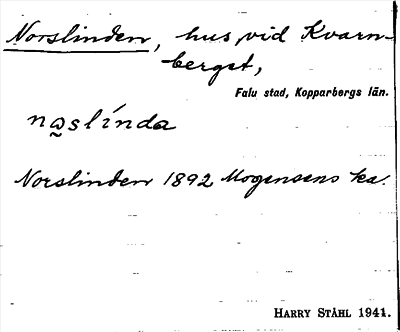 Norslinden, hus vid Kvarn-
berget,
Falu stad, Kopparbergs län.
na̰slínda
Norslinden 1892 Mogensens ka.
HARRY STÅHL 1941.